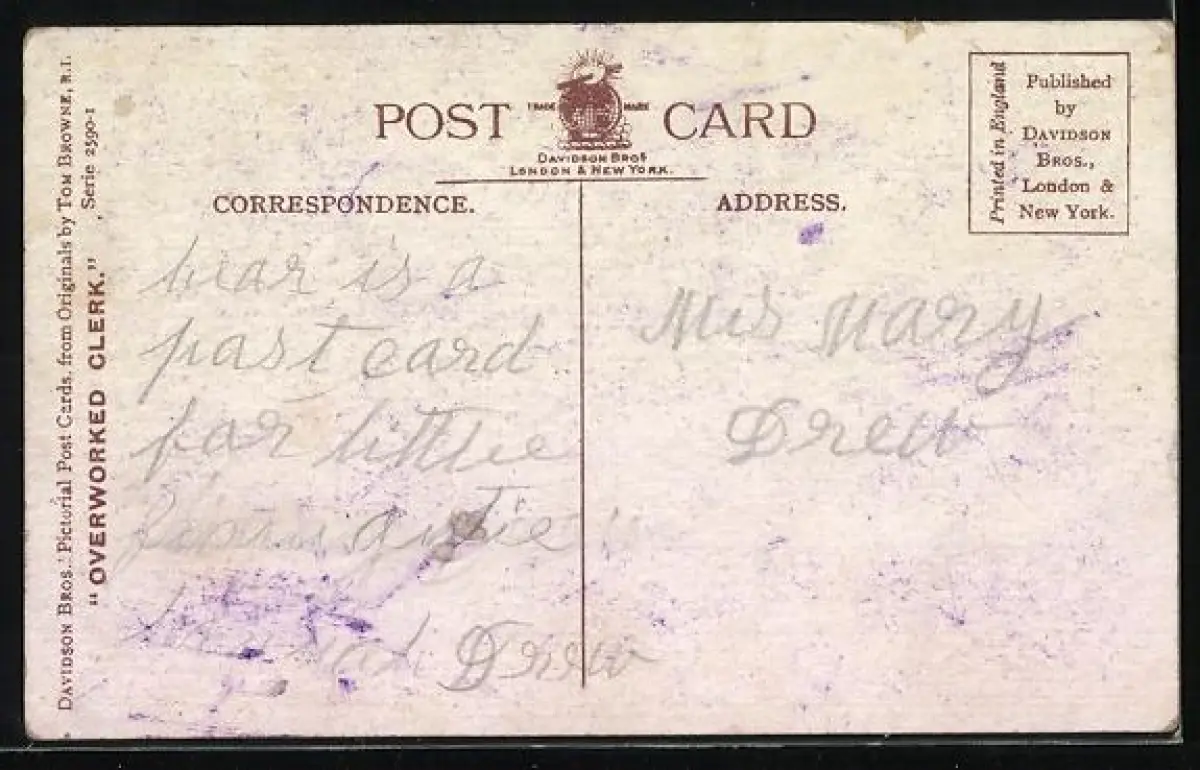 DAVIDSON BROS.' Pictorial Post Cards, from Originals by TOM BROWNE, R.I.
"OVERWORKED CLERK." , Serie 2590-1
POST CARD
TRADE MARK
DAVIDSON BROS
LONDON & NEW YORK.
CORRESPONDENCE.
hear is a
past card
far little
Drew
ADDRESS.
Mis Mary
Drew
Printed in England
Published
by
DAVIDSON
BROS.,
London &
New York.